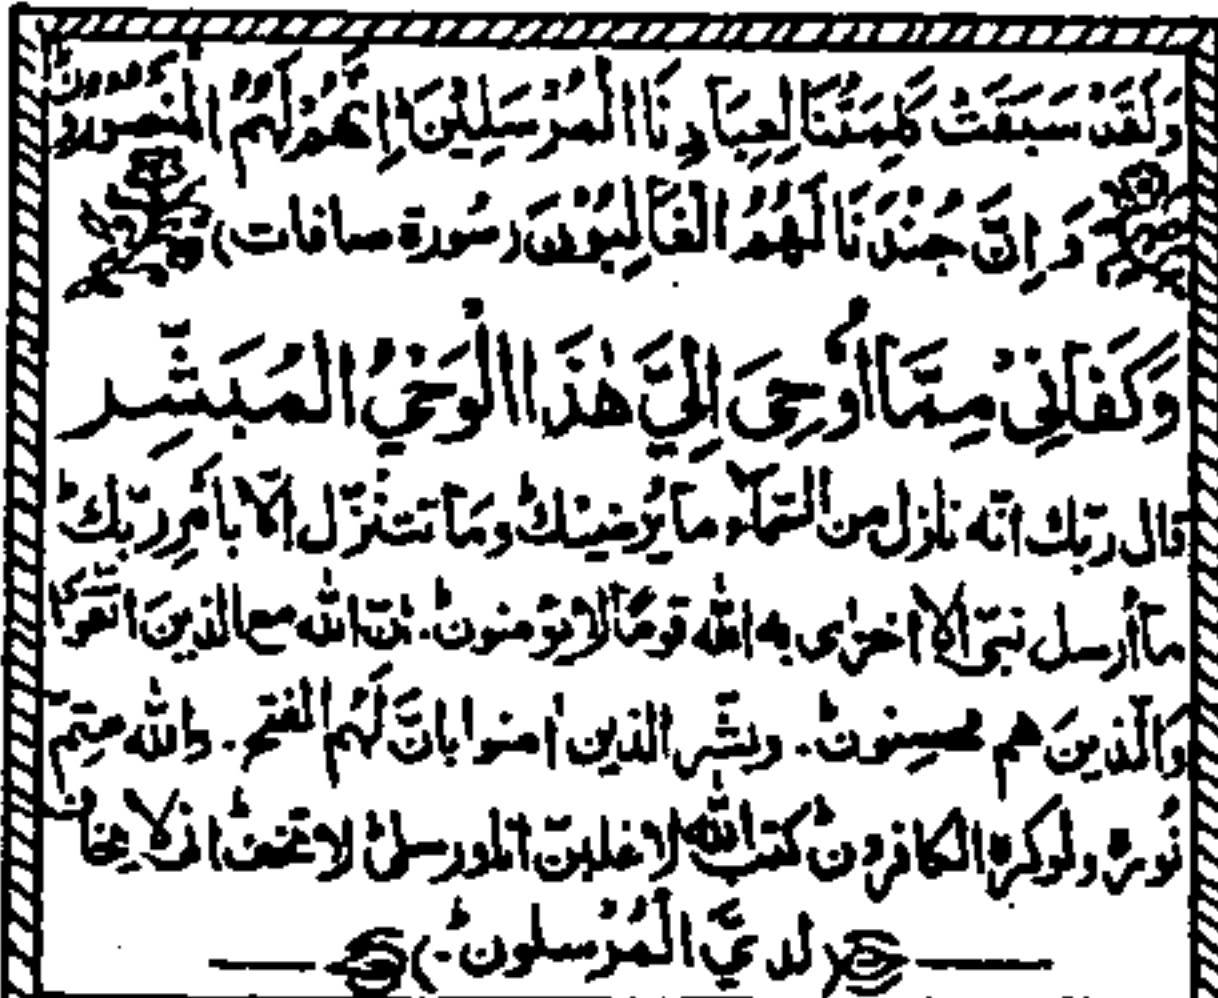 وَلَقَدْ سَبَقَتْ كَلِمَتُنَا لِعِبَادِنَا الْمُرْسَلِيْنَ اِنَّهُمْ لَهُمُ الْمَنْصُورُونَ
وَ اِنَّ جُنْدَنَا لَهُمُ الْغَالِبُوْنَ (سُورة صافات)
وَكَفَانِيْ مِمَّا اُوحِىَ اِلَيَّ هٰذَا الْوَحْيُ الْمُبَشِّر
قال ربّك انّه نازل من السّمآء ما يُرضيك وما نتنزّل الّا بامرِ ربّك
ما اُرسل نبىّ الا اخزى به الله قومًا لا يؤمنون. انّ الله مع الذينَ اتّقَوا
وَالّذينَ هم محسنون. وبشّر الذين اٰمنوا بانّ لَهُم الفتح. والله متمّ
نُوره ولوكره الكافرون كتب الله لاغلبنّ انا ورسلى لا تخف انى لا يخاف
(لديَّ الْمُرْسلون.)